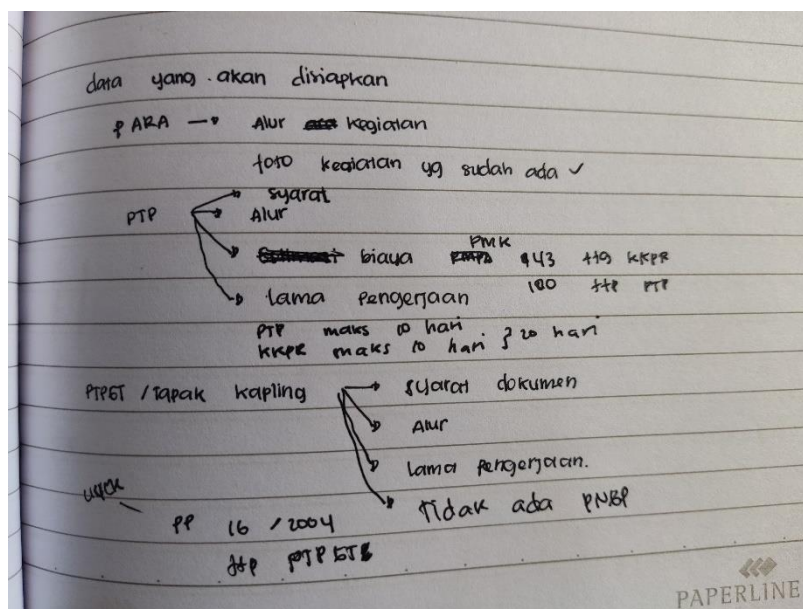 data yang akan disiapkan
PARA → Alur kegiatan
foto kegiatan yg sudah ada ✓
→ syarat
PTP → Alur
→ biaya PMK 143 ttg KKPR
→ lama pengerjaan 180 ttp PTP
PTP maks 10 hari
KKPR maks 10 hari } 20 hari
/ Tapak kapling → syarat dokumen
→ Alur
→ lama pengerjaan.
→ Tidak ada PNBP
PP 16 / 2004
ttp
PAPERLINE